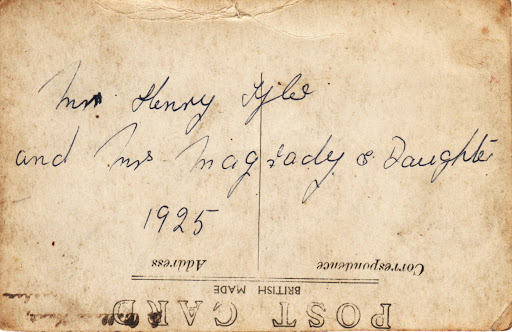 Mrs Henry Tyler
and Mrs Magrady & Daughter
1925
Address Correspondence
BRITISH MADE
POST CARD